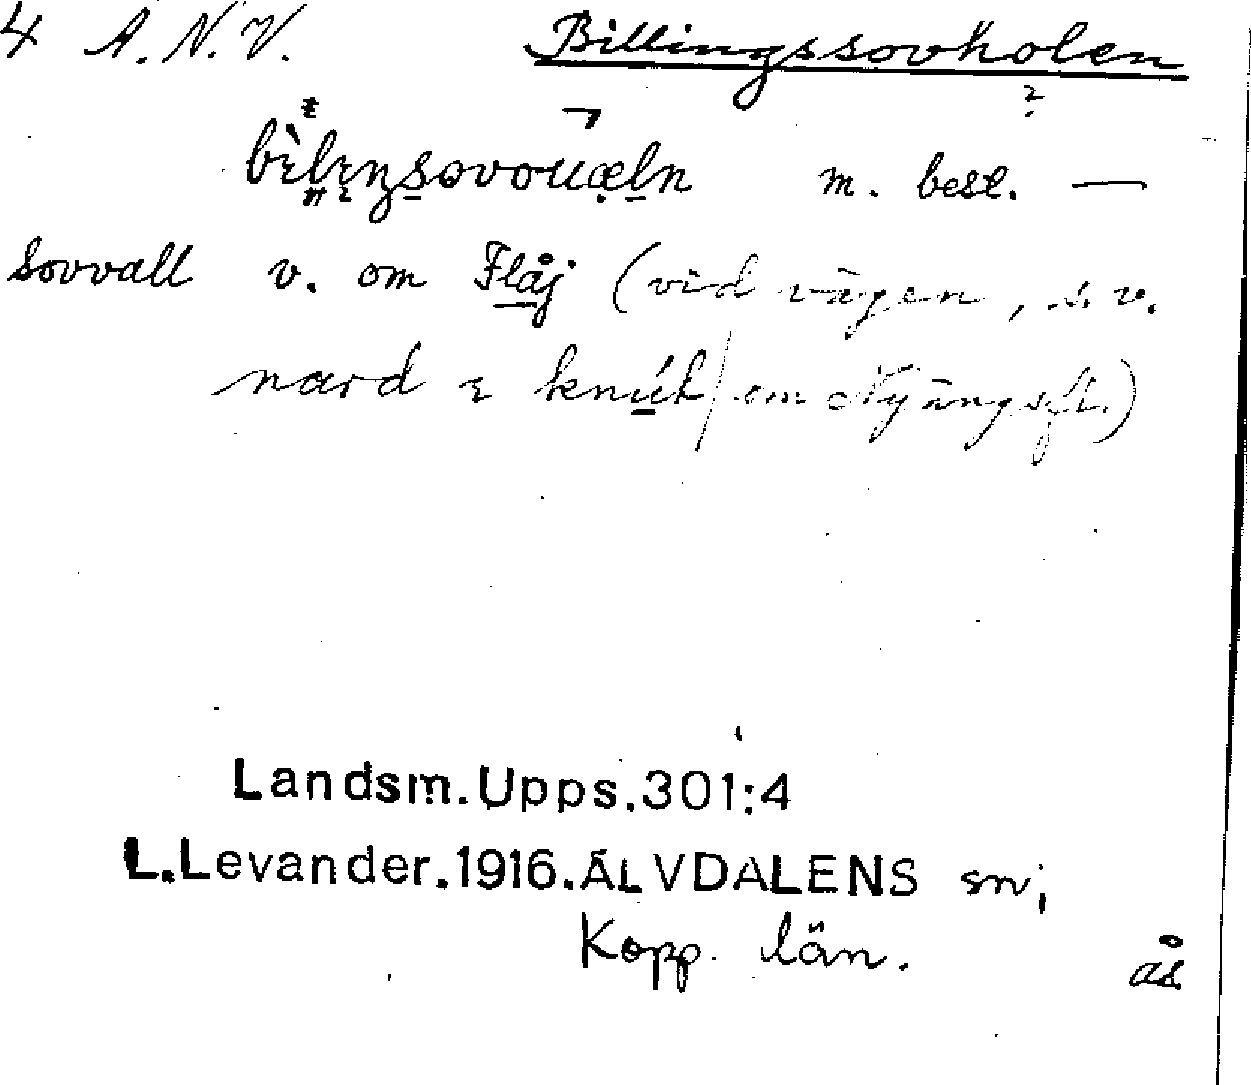 4 A.N.V. Billingssovholen
?
m. best. —
sovvall v. om Flåj (vid vägen, s.v.
nard i knúk / om Nyängsft.)
Landsm.Upps.301:4
L.Levander.1916.ÄLVDALENS sn;
Kopp. län.
ås